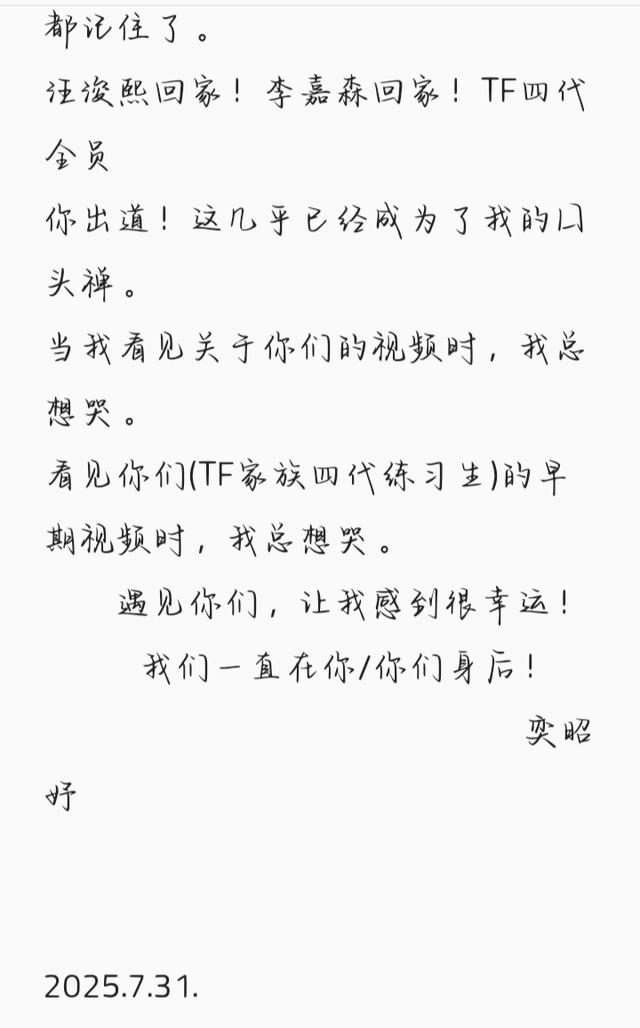 都记住了。
汪浚熙回家！李嘉森回家！TF四代
全员
你出道！这几乎已经成为了我的口
头禅。
当我看见关于你们的视频时，我总
想哭。
看见你们(TF家族四代练习生)的早
期视频时，我总想哭。
遇见你们，让我感到很幸运！
我们一直在你/你们身后！
奕昭
妤
2025.7.31.